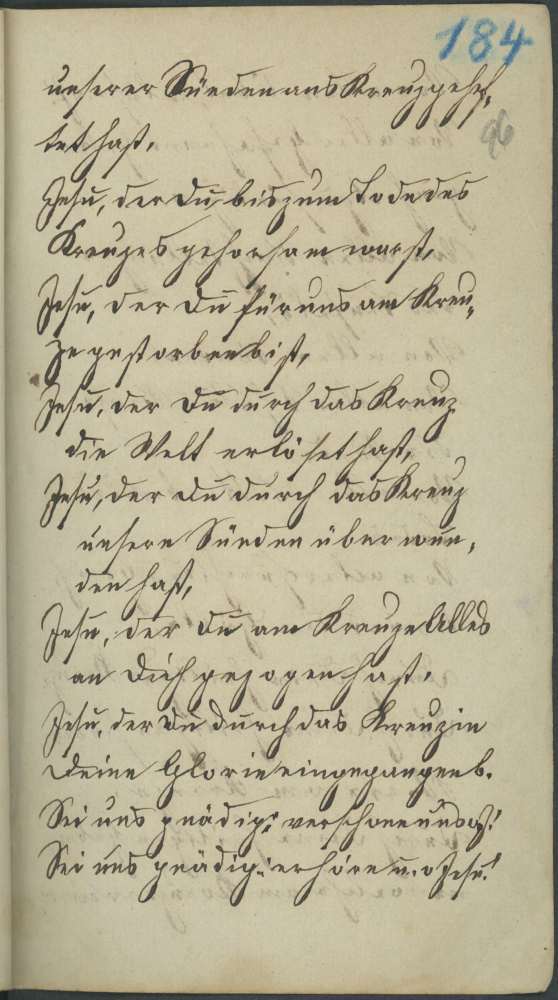 184
96
unserer Sünden ans Kreuz gehef-
tet hast,
Jesu, der Du bis zum Tode des
Kreuzes gehorsam warst,
Jesu, der Du für uns am Kreu-
ze gestorben bist,
Jesu, der Du durch das Kreuz
die Welt erlöset hast,
Jesu, der Du durch das Kreuz
unsere Sünden überwun-
den hast,
Jesu, der Du am Kreuze Alles
an Dich gezogen hast,
Jesu, der Du durch das Kreuz in
Deine Glorie eingegangen b.
Sei uns gnädig: verschone uns o J.!
Sei uns gnädig: erhöre u. o Jesu!